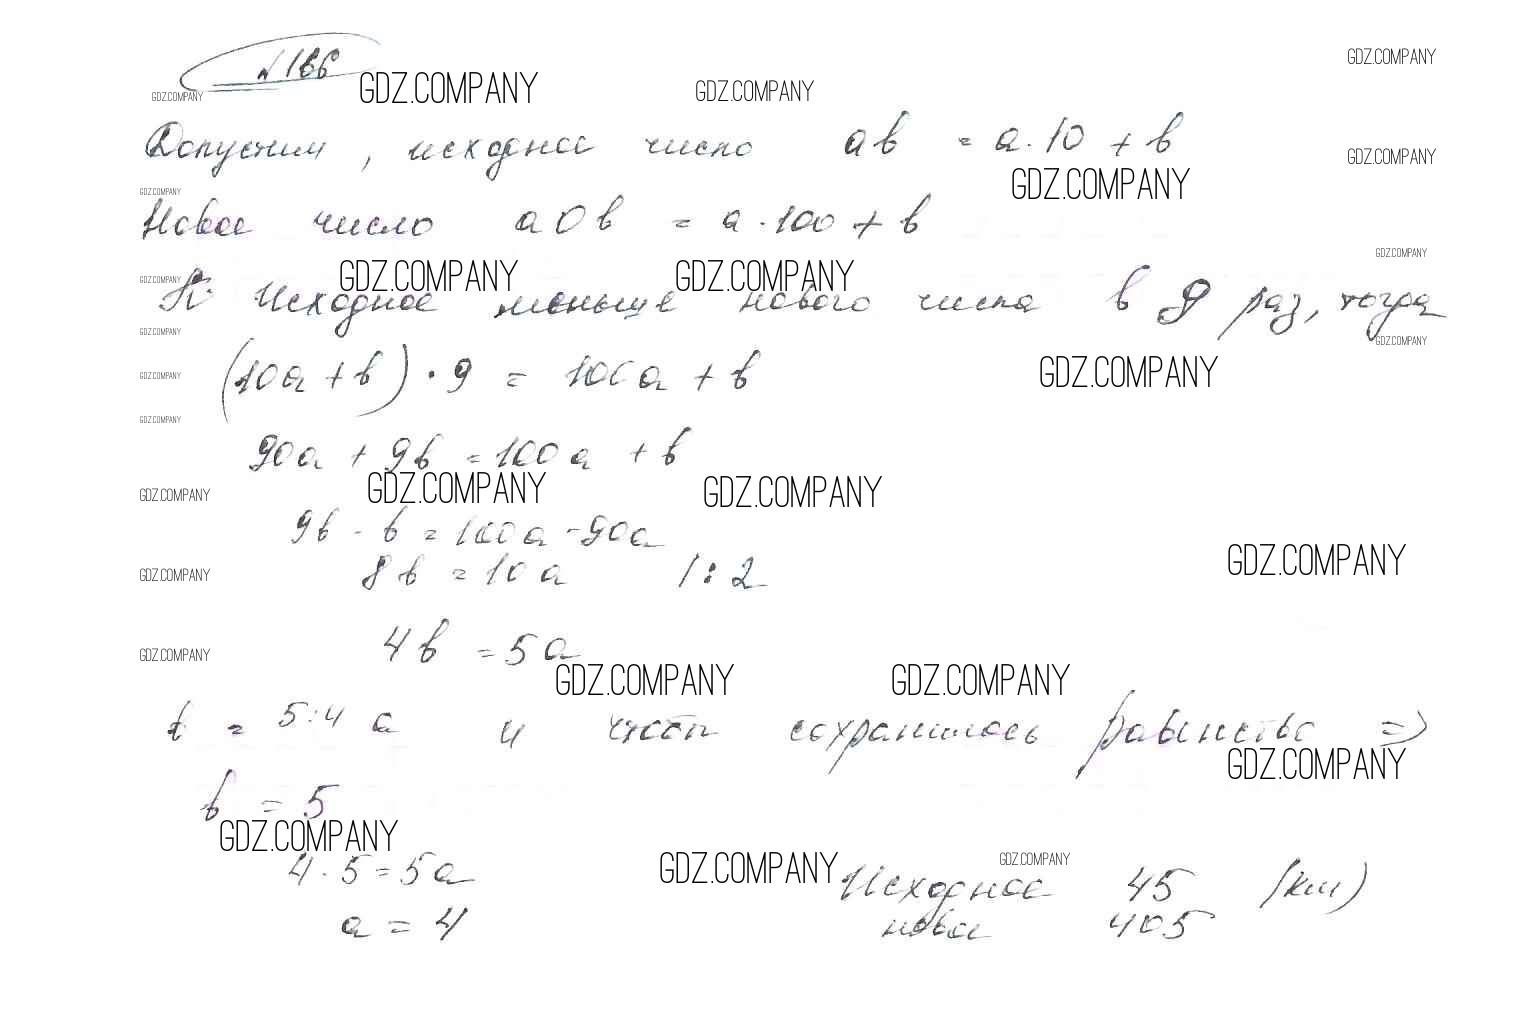 №166
GDZ.COMPANY GDZ.COMPANY GDZ.COMPANY GDZ.COMPANY
Допустим, исходное число ab = a·10 + b
GDZ.COMPANY
GDZ.COMPANY GDZ.COMPANY
Новое число a0b = a·100 + b
GDZ.COMPANY
GDZ.COMPANY GDZ.COMPANY GDZ.COMPANY
Исходное меньше нового числа в 9 раз, тогда
GDZ.COMPANY GDZ.COMPANY
(10a + b)·9 = 100a + b
GDZ.COMPANY GDZ.COMPANY
GDZ.COMPANY
90a + 9b = 100a + b
GDZ.COMPANY GDZ.COMPANY GDZ.COMPANY
9b - b = 100a - 90a
GDZ.COMPANY
8b = 10a /:2
GDZ.COMPANY
4b = 5a
GDZ.COMPANY
GDZ.COMPANY GDZ.COMPANY
b = 5:4 a и сохранилось равенство =>
GDZ.COMPANY
b = 5
GDZ.COMPANY
4·5 = 5a GDZ.COMPANY Исходное 45 (км)
GDZ.COMPANY
a = 4 новое 405